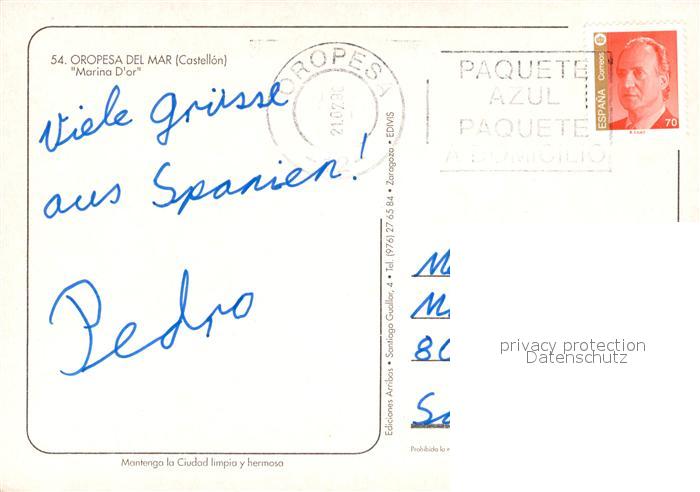 54. OROPESA DEL MAR (Castellón)
"Marina D'or"
Viele Grüsse
aus Spanien!
Pedro
Mantenga la Ciudad limpia y hermosa
Ediciones Arribas • Santiago Guallar, 4 • Tel. (976) 27 65 84 • Zaragoza • EDIVIS
OROPESA
PAQUETE
AZUL
PAQUETE
A DOMICILIO
ESPAÑA Correos
70
80
Prohibida la
privacy protection
Datenschutz